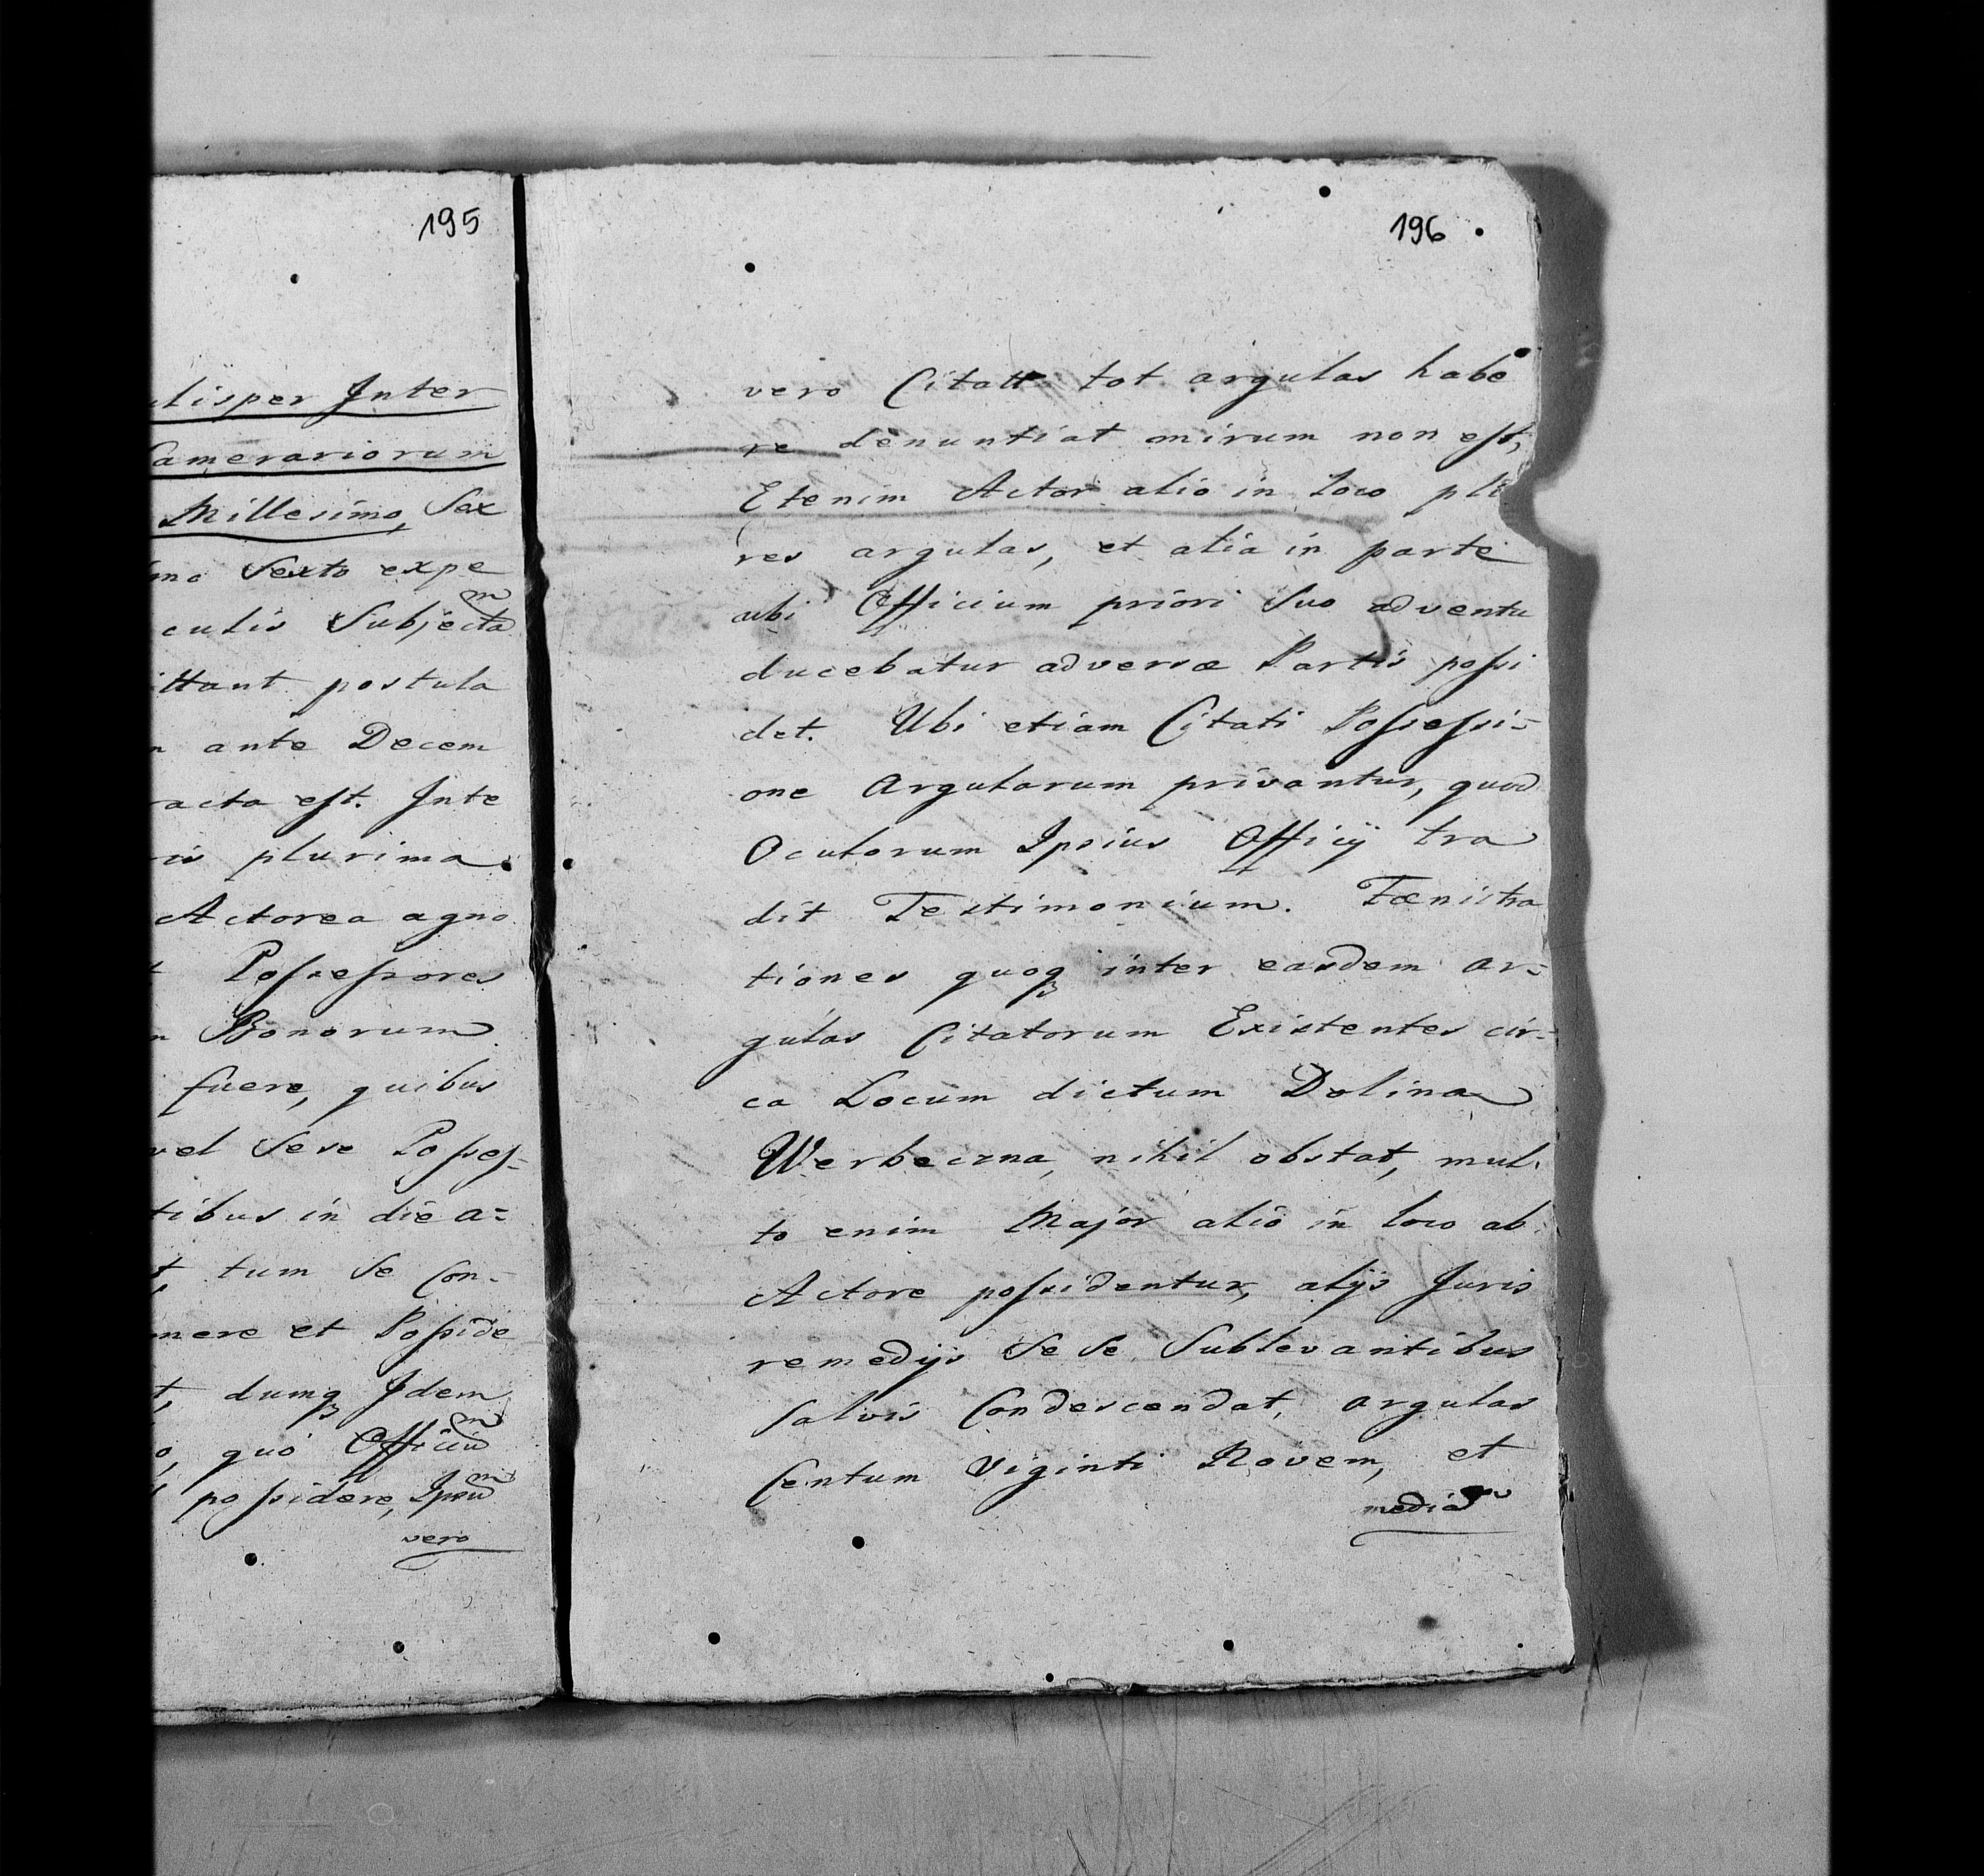 195
lisper Inter
Camerariorum
Millesimo, Sex
mo Sexto expe
culis Subjectam
ittant postula
n ante Decem
acta est. Inte
is plurima
Actorea agno
t Possessores
n Bonorum
fuere, quibus
vel Sese Posses-
tibus in die a=
t, tum se Con-
mere et Posside
t, dumq Idem
o, quó Officium
possidere, Ipsum
vero
196
vero Citatt tot argulas habe
re denuntiat mirum non est,
Etenim Actor alio in Loco plu
res argulas, et alia in parte
ubi Officium priori Suo adventu
ducebatur adversæ Partis possi
det. Ubi etiam Citati Possessi-
one Argularum privantur, quod
Oculorum Ipsius Officij tra
dit Testimonium. Fœnistra
tiones quoq inter easdem ar=
gulas Citatorum Existentes cir=
ca Locum dictum Dolina
Werbeczna, nihil obstat, mul-
to enim Major alió in loco ab
Actore possidentur, alijs Juris
remedijs Se Se Sublevantibus
salvis Condescendat, argulas
Centum Viginti Novem, et
mediam